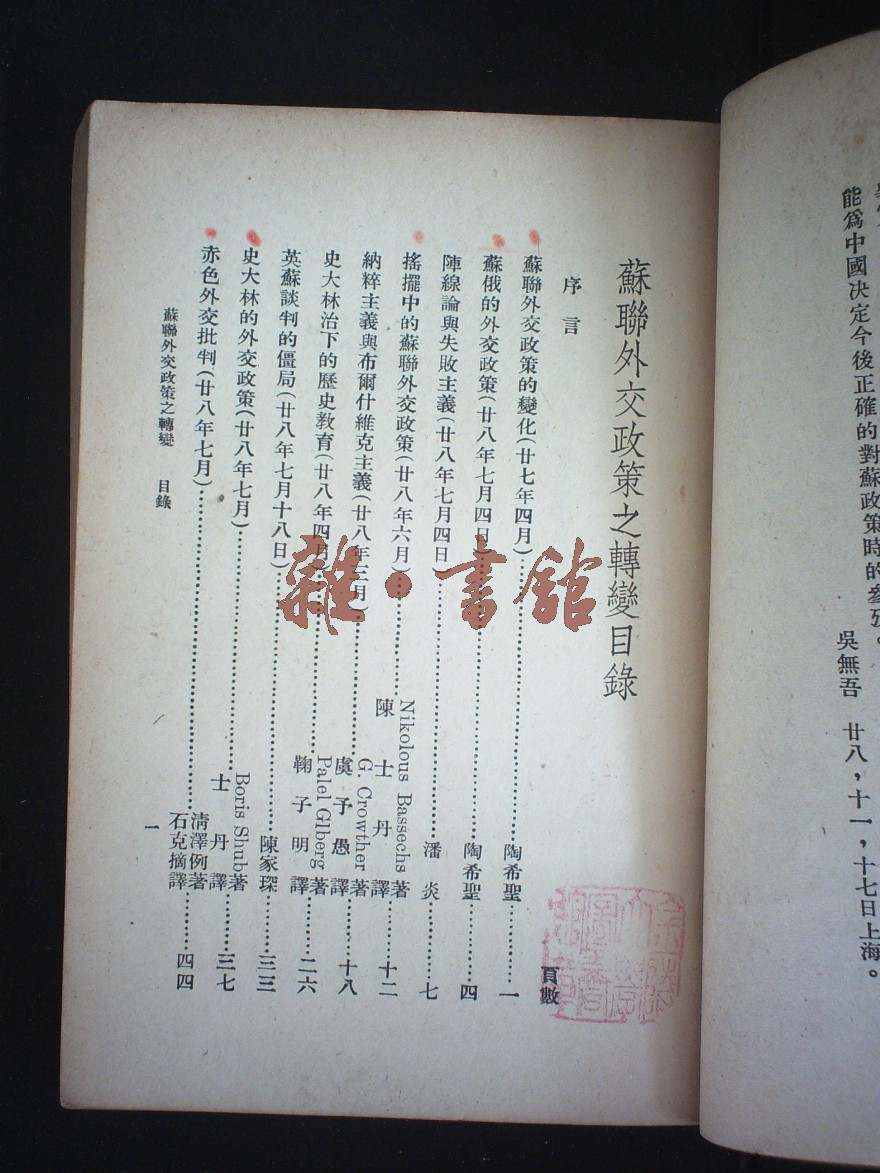 能爲中國决定今後正確的對蘇政策時的參攷。
吳無吾 廿八，十一，十七日上海。
蘇聯外交政策之轉變目錄
頁數
序言
蘇聯外交政策的變化(廿七年四月)……陶希聖……一
蘇俄的外交政策(廿八年七月四日)……陶希聖……四
陣線論與失敗主義(廿八年七月四日)……潘炎……七
搖擺中的蘇聯外交政策(廿八年六月)……Nikolous Bassechs著
陳士丹譯……十二
納粹主義與布爾什維克主義(廿八年三月)……G. Crowther著
虞予愚譯……十八
史大林治下的歷史教育(廿八年四月)……Palel Glberg著
鞠子明譯……二六
英蘇談判的僵局(廿八年七月十八日)……陳家琛……三三
史大林的外交政策(廿八年七月)……Boris Shub著
士丹譯……三七
赤色外交批判(廿八年七月)……清澤例著
石克摘譯……四四
蘇聯外交政策之轉變 目錄
一
雜·書館